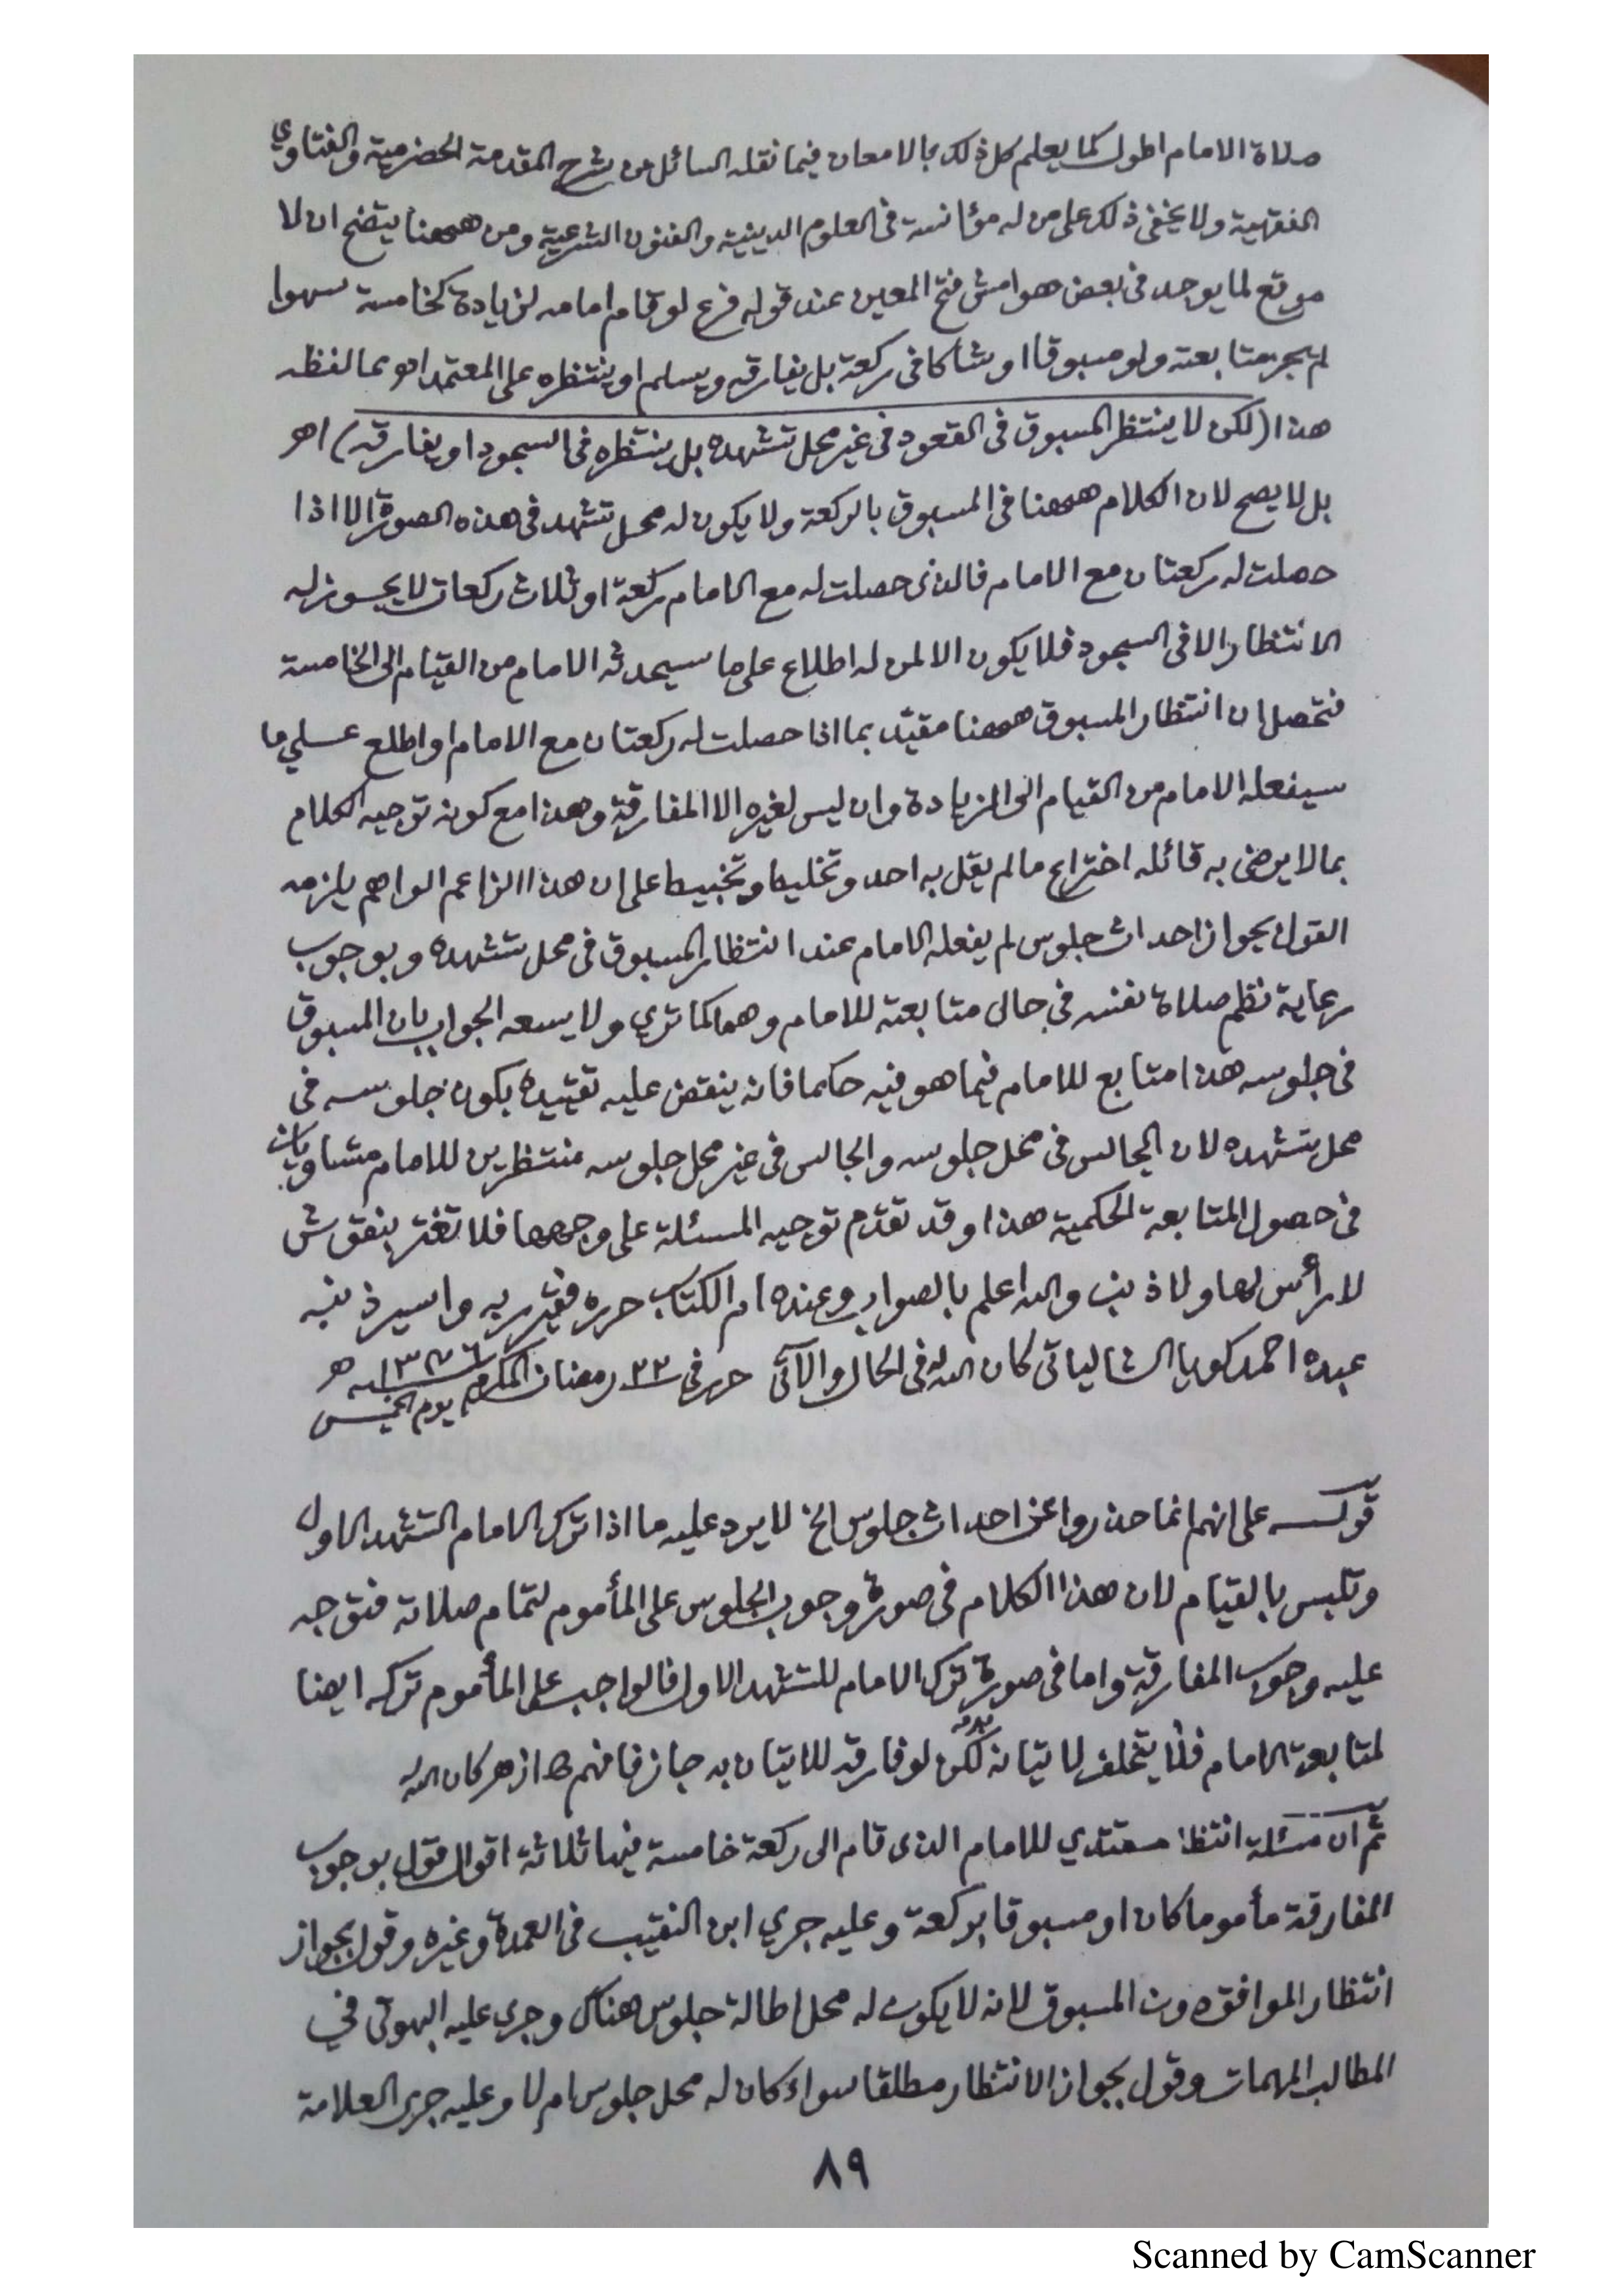 صلاة الامام اطول كما يعلم كل ذلك بالامعان فيما نقله السائل من شرح المقدمة الحضرمية والفتاوي
الفقهية ولا يخفى ذلك على من له مؤانسة فى العلوم الدينية والفنون الشرعية ومن ههنا يتضح ان لا
موقع لما يوجد فى بعض هوامش فتح المعين عند قوله فرع لو قام امامه لزيادة كخامسة سهوا
لم يجز متابعته ولو مسبوقا او شاكا فى ركعة بل يفارقه ويسلم او ينتظره على المعتمد اهو مما لفظه
هذا (لكن لا ينتظر المسبوق فى القعود فى غير محل تشهده بل ينتظره فى السجود او يفارقه) اهـ
بل لا يصح لان الكلام ههنا فى المسبوق بالركعة ولا يكون له محل تشهد فى هذه الصورة الا اذا
حصلت له ركعتان مع الامام فالذى حصلت له مع الامام ركعة او ثلاث ركعات لا يجوز له
الانتظار الا فى السجود فلا يكون الا لمن له اطلاع على ما سيحدثه الامام من القيام الى الخامسة
فتحصل ان انتظار المسبوق ههنا مقيّد بما اذا حصلت له ركعتان مع الامام او اطلع على ما
سيفعله الامام من القيام الى الزيادة وان ليس لغيره الا المفارقة وهذا مع كونه توجيه الكلام
بما لا يرضى به قائله اختراع ما لم يقل به احد وتخليط وتخبيط على ان هذا الزاعم الواهم يلزمه
القول بجواز احداث جلوس لم يفعله الامام عند انتظار المسبوق فى محل تشهده وبوجوب
رعاية نظم صلاة نفسه فى حال متابعته للامام وهما كما تري ولا يسعه الجواب بان المسبوق
فى جلوسه هذا متابع للامام فيما هو فيه حكما فانه ينقض عليه تقييده بكون جلوسه فى
محل تشهده لان الجالس فى محل جلوسه والجالس فى غير محل جلوسه منتظرين للامام متساويان
فى حصول المتابعة الحكمية هذا وقد تقدّم توجيه المسئلة على وجهها فلا تغتر بنقوش
لا رأس لها ولا ذنب والله اعلم بالصواب وعنده ام الكتاب حرره فقير ربه واسير ذنبه
عبده احمد كويا الشالياتى كان الله له فى الحال والآتى حرر فى ٢٢ رمضان المكرم ١٣٧٦ هـ
يوم الخميس
قوله على انهم انما حذروا عن احداث جلوس الخ لا يرد عليه ما اذا ترك الامام التشهد الاول
وتلبس بالقيام لان هذا الكلام فى صورة وجوب الجلوس على المأموم لتمام صلاته فتوجه
عليه وجوب المفارقة واما فى صورة ترك الامام للتشهد الاول فالواجب على المأموم تركه ايضا
لمتابعة الامام فلا يتخلف لاتيانه لكن لو فارقه للاتيان به جاز فافهم ازهر كان الله له
ثم ان مسئلة انتظار مقتدي للامام الذى قام الى ركعة خامسة فيها ثلاثة اقوال قول بوجوب
المفارقة مأموما كان او مسبوقا بركعة وعليه جري ابن النقيب فى العمدة وغيره وقول بجواز
انتظار الموافق دون المسبوق لانه لا يكون له محل اطالة جلوس هناك وجرى عليه البهوتى في
المطالب المهمات وقول بجواز الانتظار مطلقا سواء كان له محل جلوس ام لا وعليه جرى العلامة
٨٩
Scanned by CamScanner